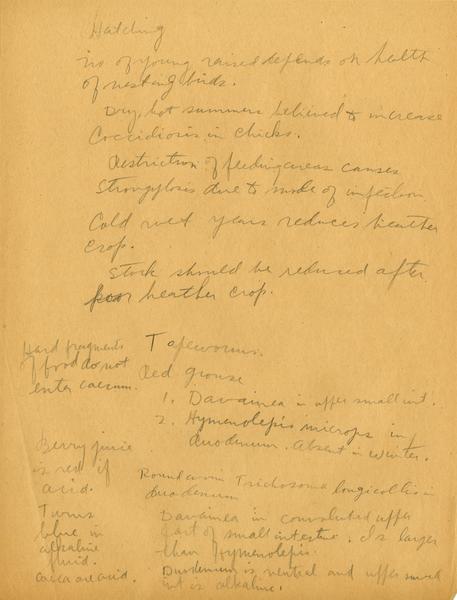 Hatching
no of young raised depends on health
of nesting birds.
Dry, hot summers believed to increase
Coccidiosis in chicks.
Restriction of feeding areas causes
Strongylosis due to mode of infection
Cold wet years reduces heather
crop.
Stock should be reduced after
poor heather crop.
Hard fragments
of food do not
enter caecum.
Tapeworms.
Red grouse
1. Davainea in upper small int.
2. Hymenolepis microps in
duodenum. Absent in winter.
Berry juice
is red if
acid.
Turns
blue in
alkaline
fluid.
caeca are acid.
Roundworm Trichosoma longicollis in
duodenum
Davainea in convoluted upper
part of small intestine. Is larger
than Hymenolepis.
Duodenum is neutral and upper small
int is alkaline.